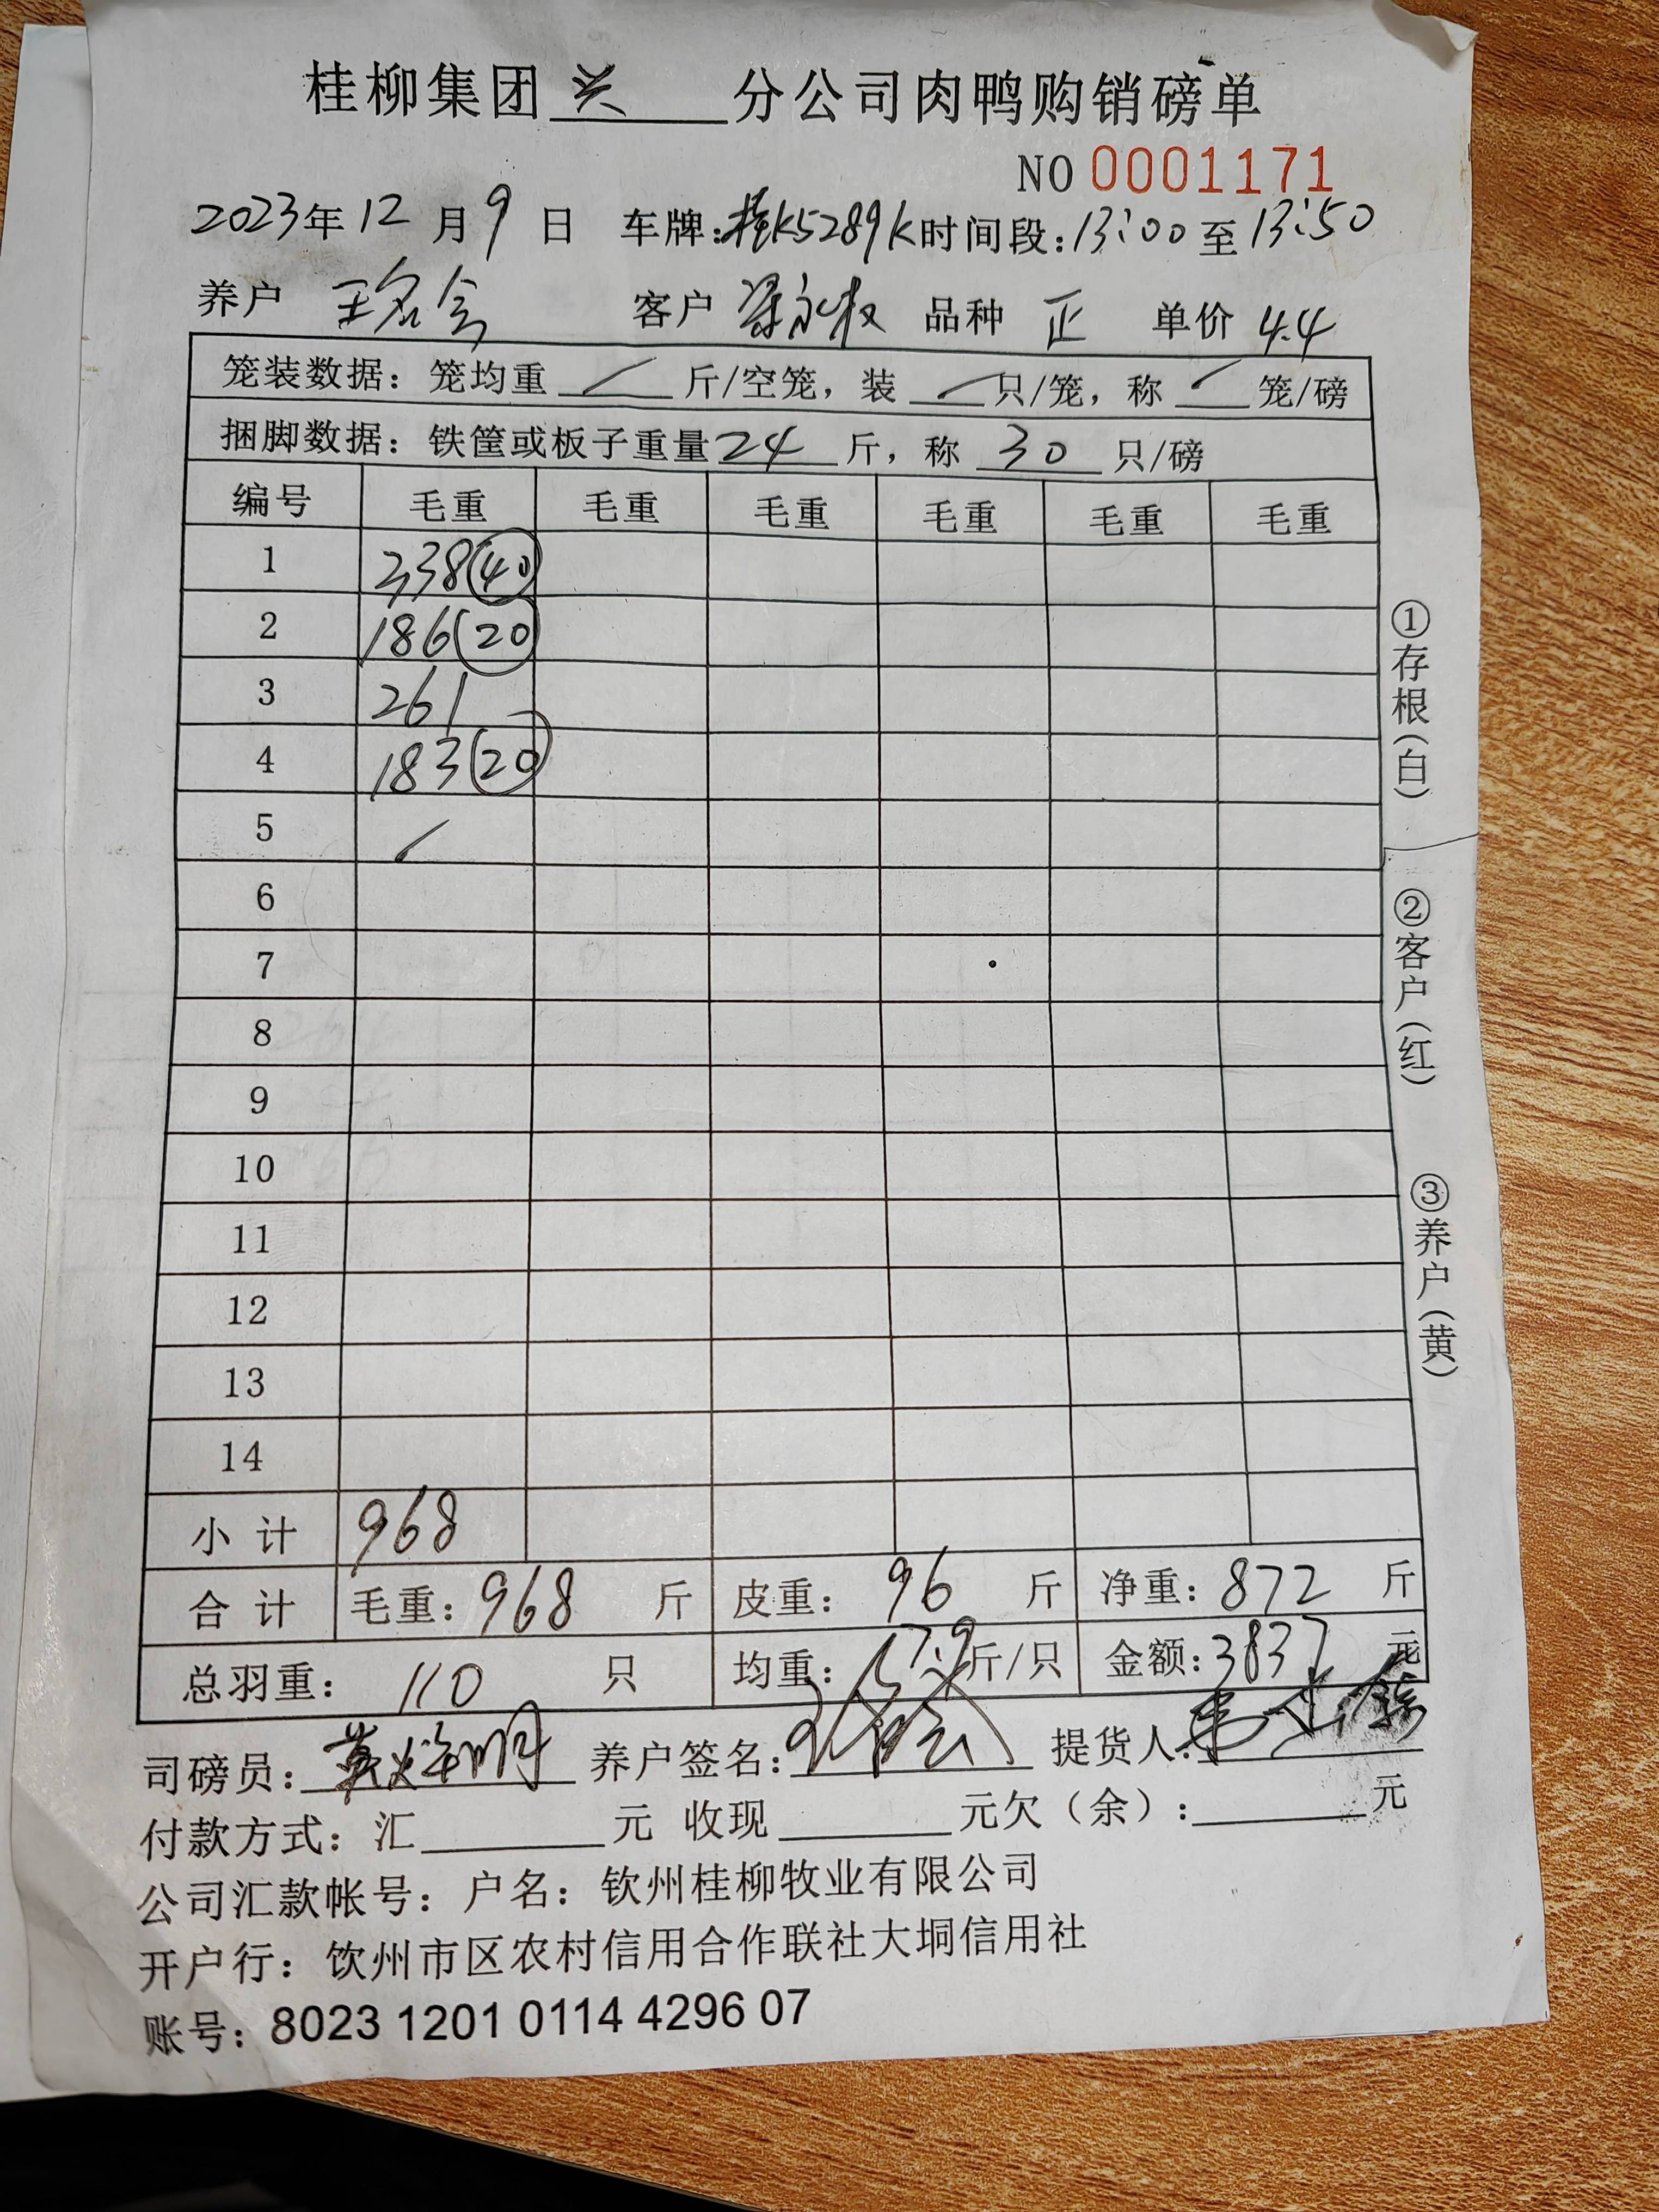 桂柳集团 兴 分公司肉鸭购销磅单
NO 0001171
2023年12月9日 车牌:桂K5289K时间段:13:00至13:50
养户 王名会 客户 梁永权 品种 正 单价 4.4
笼装数据: 笼均重 / 斤/空笼, 装 / 只/笼, 称 / 笼/磅
捆脚数据: 铁筐或板子重量 24 斤, 称 30 只/磅
编号 毛重 毛重 毛重 毛重 毛重 毛重
1 238(40)
2 186(20)
3 261
4 183(20)
5 /
6
7
8
9
10
11
12
13
14
小计 968
合计 毛重: 968 斤 皮重: 96 斤 净重: 872 斤
总羽重: 110 只 均重: 7.9 斤/只 金额: 3837 元
司磅员: 养户签名: 提货人:
付款方式: 汇 元 收现 元欠(余): 元
公司汇款帐号: 户名: 钦州桂柳牧业有限公司
开户行: 钦州市区农村信用合作联社大垌信用社
账号: 8023 1201 0114 4296 07
①存根(白)
②客户(红)
③养户(黄)